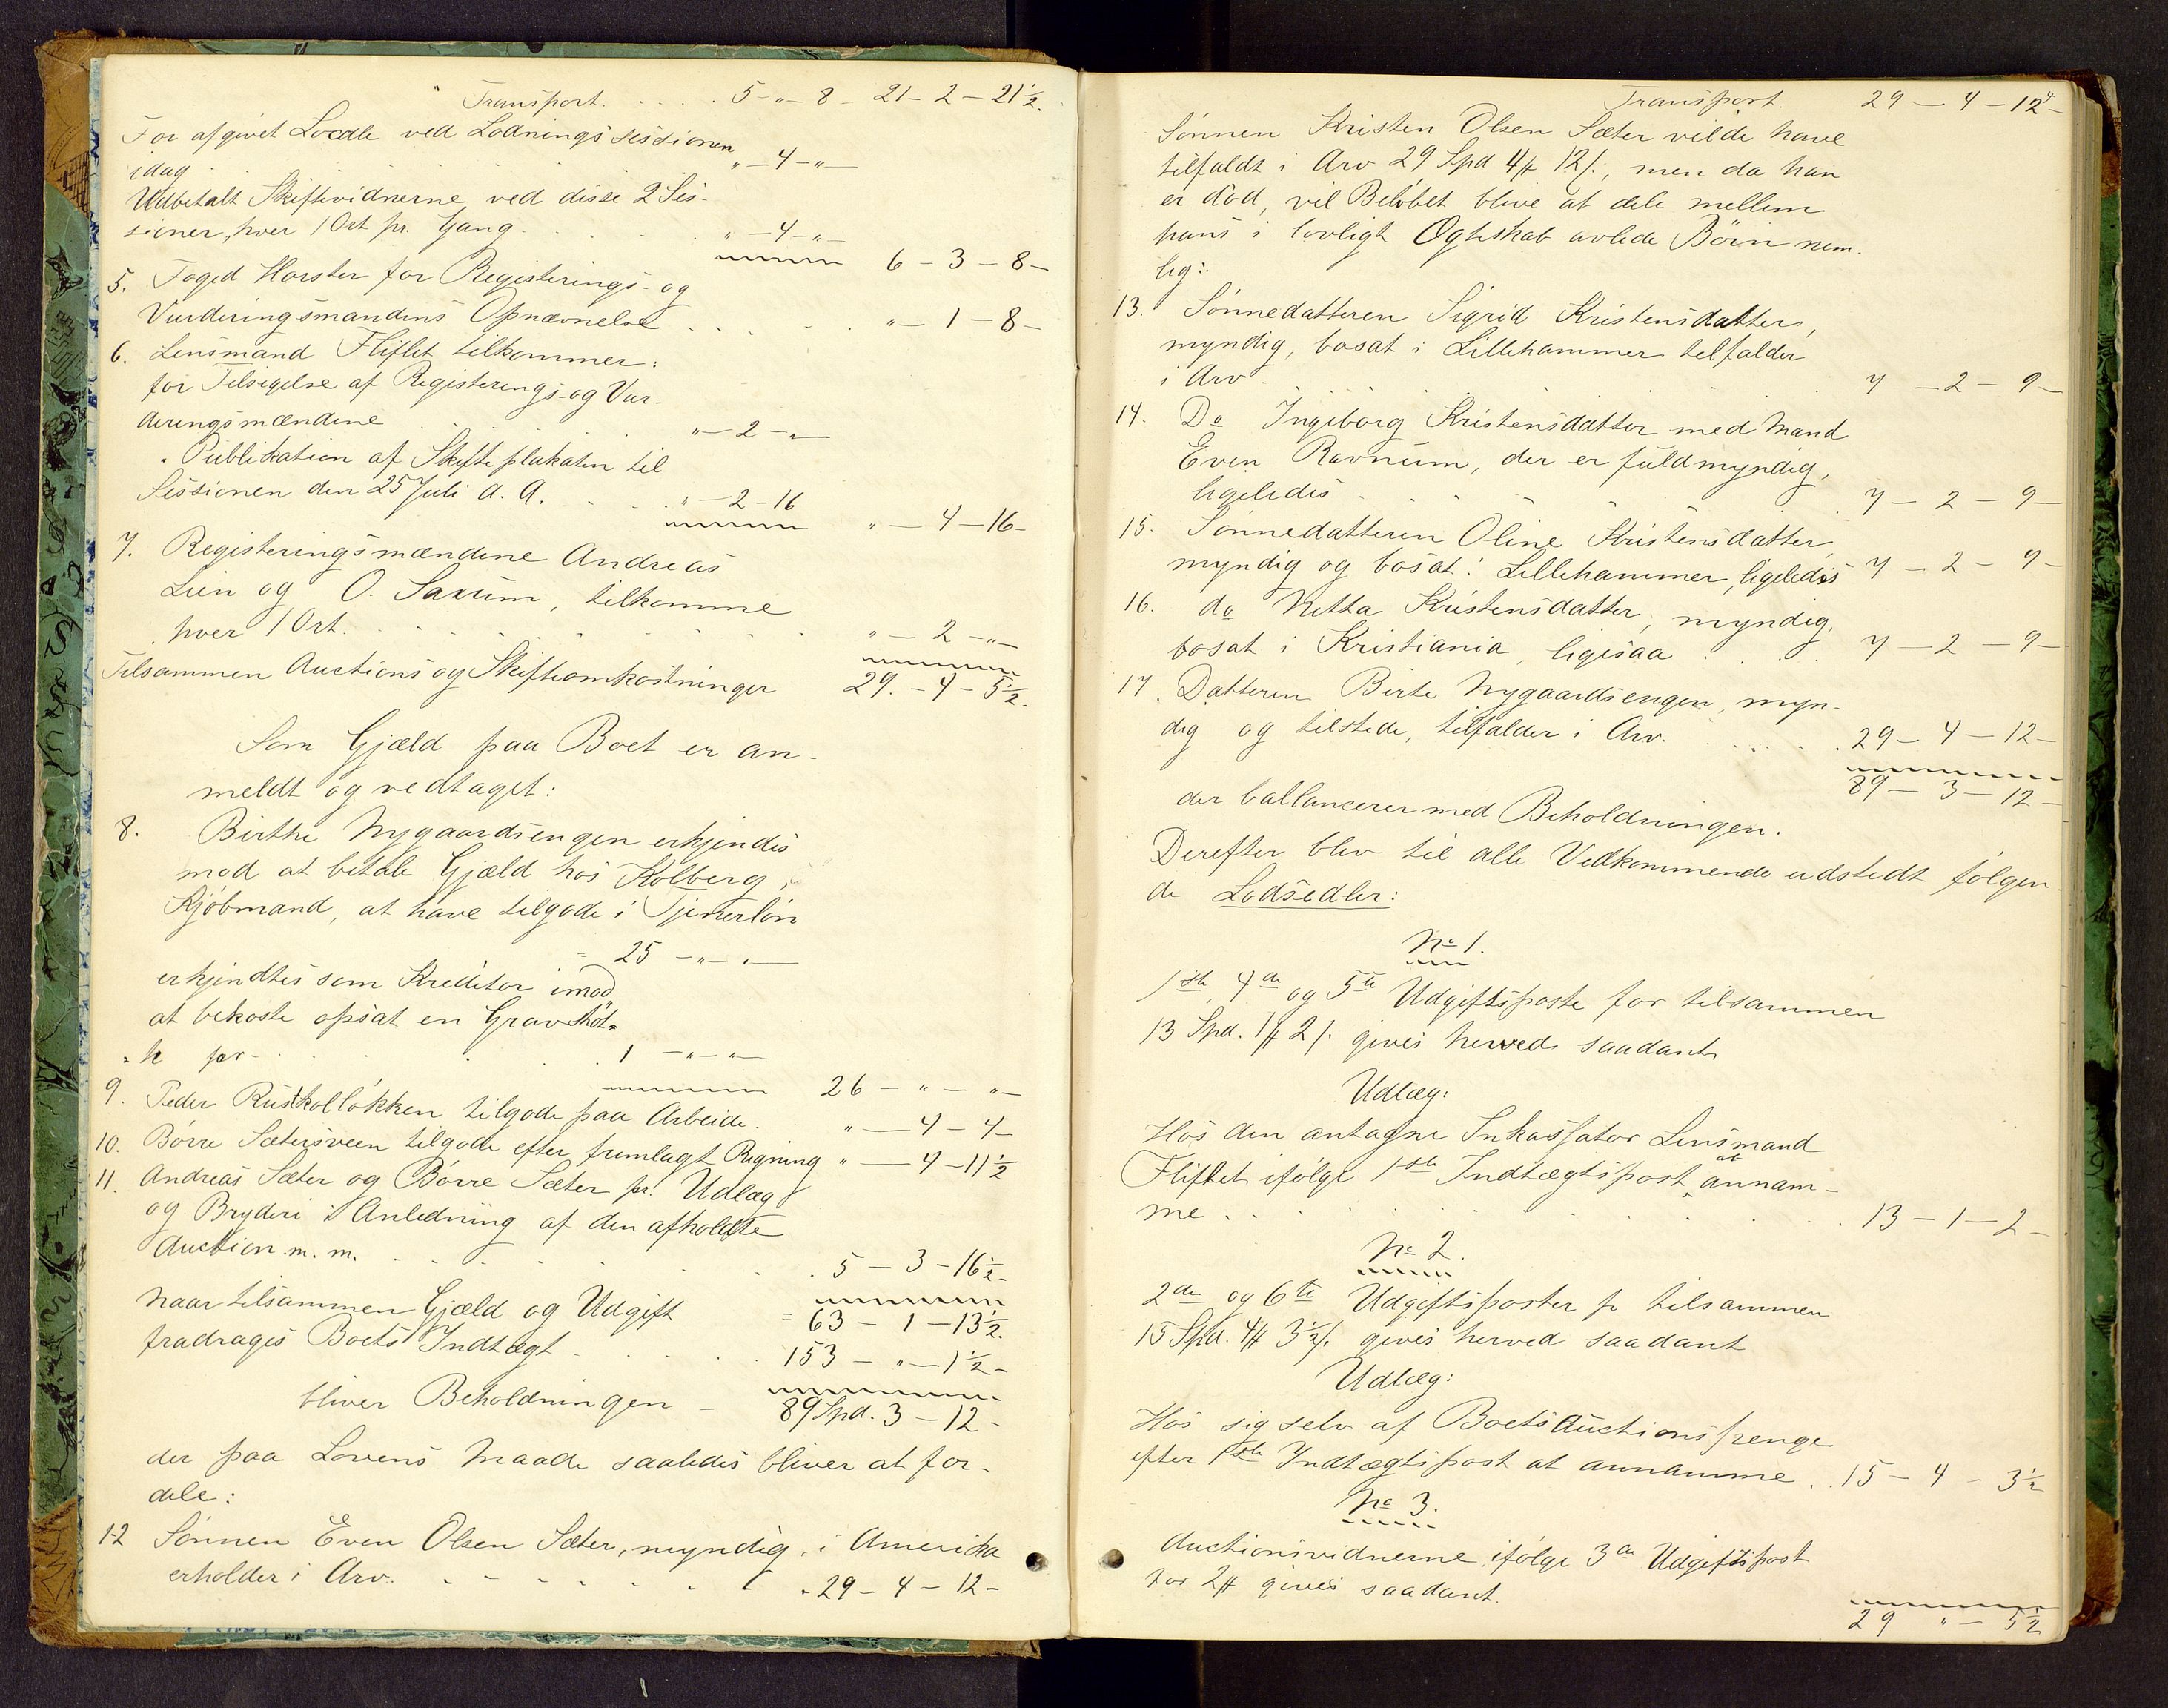 Transport. . . . . 5 - " - 8 - 21 - 2 - 21½.
For afgivet Locale ved Lodningssessionen
idag . " - 4 - " -
Udbetalt Skiftevidnerne ved disse 2 Ses-
sioner, hver 1 Ort pr. Gang . . . . " - 4 - " - 6 - 3 - 8 -
5. Foged Horster for Registerings- og
Vurderingsmændens Opnævnelse . . . . . " - 1 - 8 -
6. Lensmand Fliflet tilkommer:
for Tilsigelse af Registerings- og Vur-
deringsmændene . . . " - 2 - " -
" Publikation af Skifteplakaten til
Sessionen den 25 Juli d. A. . . . " - 2 - 16 " - 4 - 16 -
7. Registeringsmændene Andreas
Lien og O. Saxum, tilkomme
hver 1 Ort. . . . . . . . . " - 2 - " -
Tilsammen Auctions og Skifteomkostninger 29. - 4 - 5½.
Som Gjæld paa Boet er an-
meldt og vedtaget:
8. Birthe Nygaardsengen erkjendes
mod at betale Gjæld hos Kolberg,
Kjøbmand, at have tilgode i Tjenerløn
= 25 - " - " -
erkjendtes som Kreditor imod
at bekoste opsat en Gravstöt=
=te for - . . . . 1 - " - " -
26 - " - " -
9. Peder Rustkolløkken tilgode paa Arbeide. " - 4 - 4 -
10. Børre Sætersveen tilgode efter fremlagt Regning " - 4 - 11½
11. Andreas Sæter og Børre Sæter pr. Udlæg
og Bryderi i Anledning af den afholdte
Auction m. m. . . . . . . 5 - 3 - 16½ -
naar tilsammen Gjæld og Udgift = 63 - 1 - 13½.
fradrages Boets Indtægt . . . . 153 - " - 1½ -
bliver Beholdningen - 89 Spd. 3 - 12 -
der paa Lovens Maade saaledes bliver at for-
dele:
12 Sønnen Even Olsen Sæter, myndig, i Amerika
erholder i Arv. . . . . . . . 29 - 4 - 12 -
Transport. 29 - 4 - 12 -
Sønnen Kristen Olsen Sæter vilde have
tilfaldt i Arv 29 Spd 4 ℔ 12 /., men da han
er død, vil Beløbet blive at dele mellem
hans i lovligt Ægteskab avlede Børn nem-
lig:
13. Sønnedatteren Sigrid Kristensdatter,
myndig, bosat i Lillehammer tilfalder
i Arv . . . 7 - 2 - 9 -
14. Do Ingeborg Kristensdatter med Mand
Even Ravnum, der er fuldmyndig,
ligeledes . . . . . 7 - 2 - 9 -
15. Sønnedatteren Oline Kristensdatter,
myndig og bosat i Lillehammer, ligeledes 7 - 2 - 9 -
16. do Netta Kristensdatter, myndig,
bosat i Kristiania, ligesaa . . . . 7 - 2 - 9 -
17. Datteren Birte Nygaardsengen, myn-
dig og tilstede, tilfalder i Arv. . . . . 29 - 4 - 12 -
89 - 3 - 12 -
der ballancerer med Beholdningen.
Derefter blev til alle Vedkommende udstedt følgen-
de Lodsedler:
No 1.
1ste, 4de og 5te Udgiftsposte for tilsammen
13 Spd. 1 ℔ 2 /. gives herved saadant
Udlæg:
Hos den antagne Inkassator Lensmand
Fliflet ifølge 1ste Indtægtspost at annam-
me . . . . . . . . . 13 - 1 - 2 -
No 2.
2den og 6te Udgiftsposter for tilsammen
15 Spd. 4 ℔ 3½ /. gives herved saadant
Udlæg:
Hos sig selv af Boets Auctionspenge
efter 1ste Indtægtspost at annamme . . 15 - 4 - 3½
No 3.
Auctionsvidnerne ifølge 3de Udgiftspost
for 2 ℔ gives saadant.
29 " - 5½